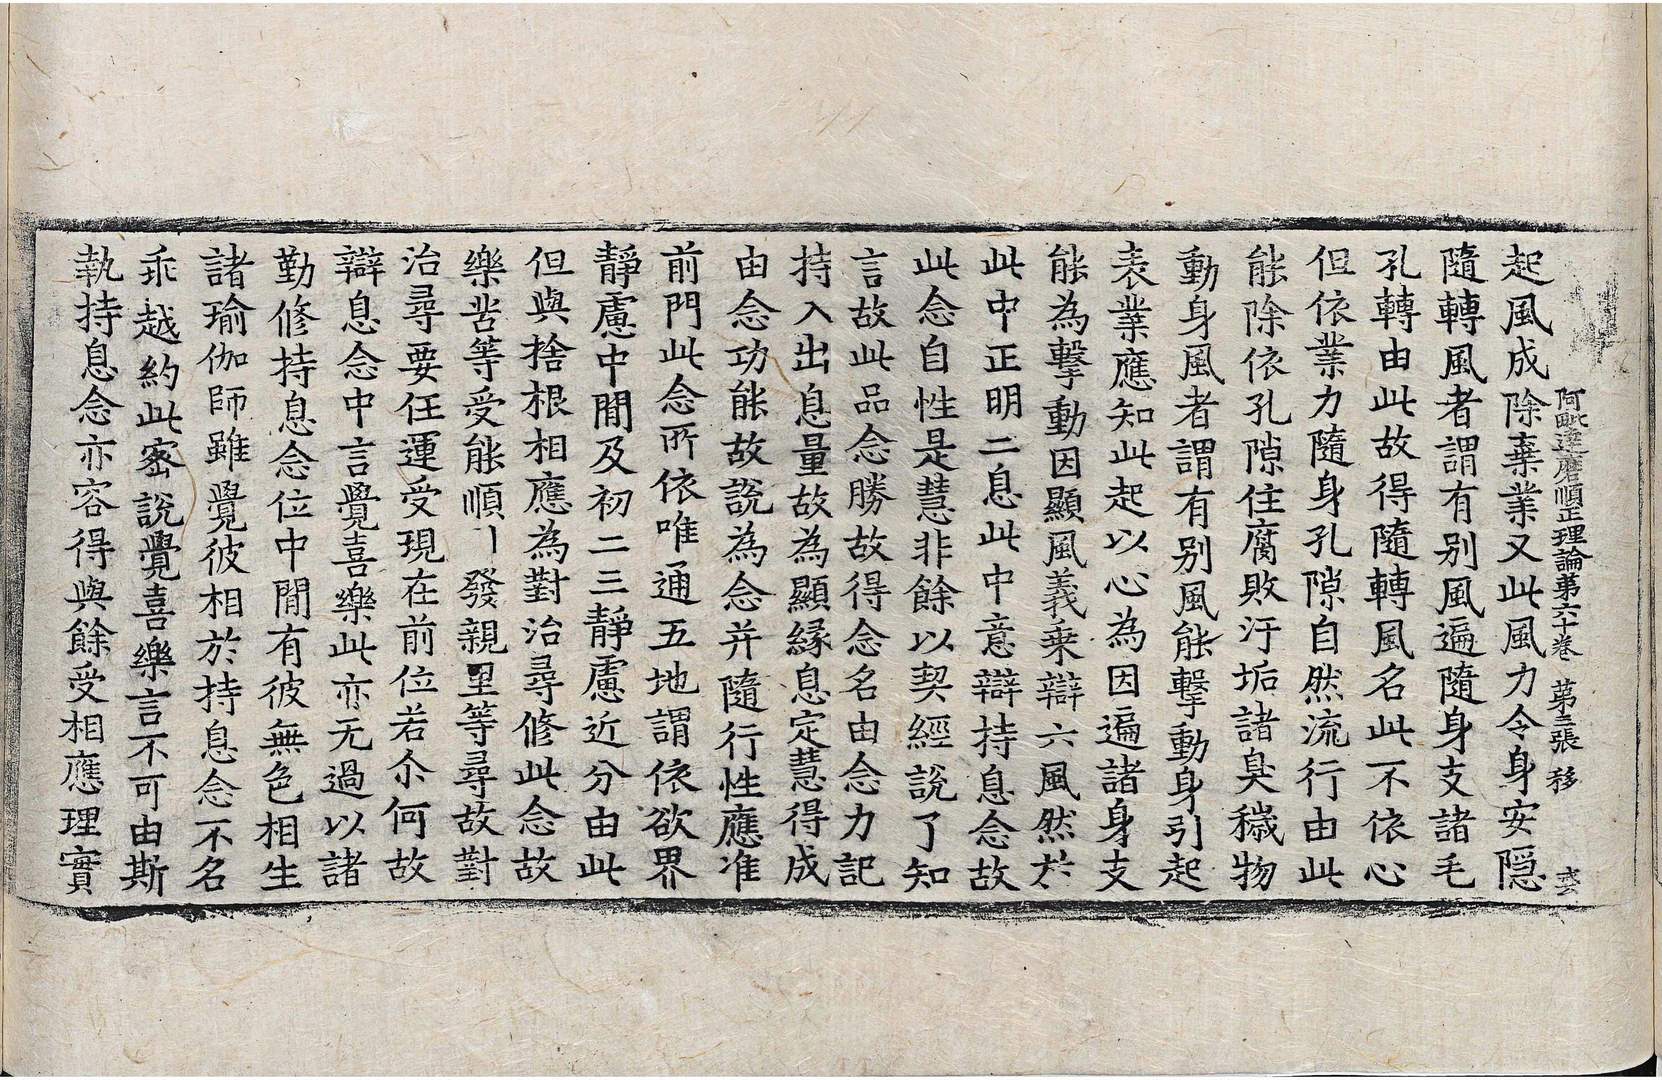 阿毗達磨順正理論第六十卷 第三張 移
起風成除棄業又此風力令身安隠
隨轉風者謂有别風遍隨身支諸毛
孔轉由此故得隨轉風名此不依心
但依業力隨身孔隙自然流行由此
能除依孔隙住腐敗汙垢諸臭穢物
動身風者謂有别風能擊動身引起
表業應知此起以心為因遍諸身支
能為擊動因顯風義乗辯六風然於
此中正明二息此中意辯持息念故
此念自性是慧非餘以契經說了知
言故此品念勝故得念名由念力記
持入出息量故為顯緣息定慧得成
由念功能故說為念并隨行性應准
前門此念所依唯通五地謂依欲界
靜慮中間及初二三靜慮近分由此
但與捨根相應為對治尋修此念故
樂苦等受能順 發親里等尋故對
治尋要任運受現在前位若尒何故
辯息念中言覺喜樂此亦无過以諸
勤修持息念位中間有彼無色相生
諸瑜伽師雖覺彼相於持息念不名
乖越約此密說覺喜樂言不可由斯
執持息念亦容得與餘受相應理實